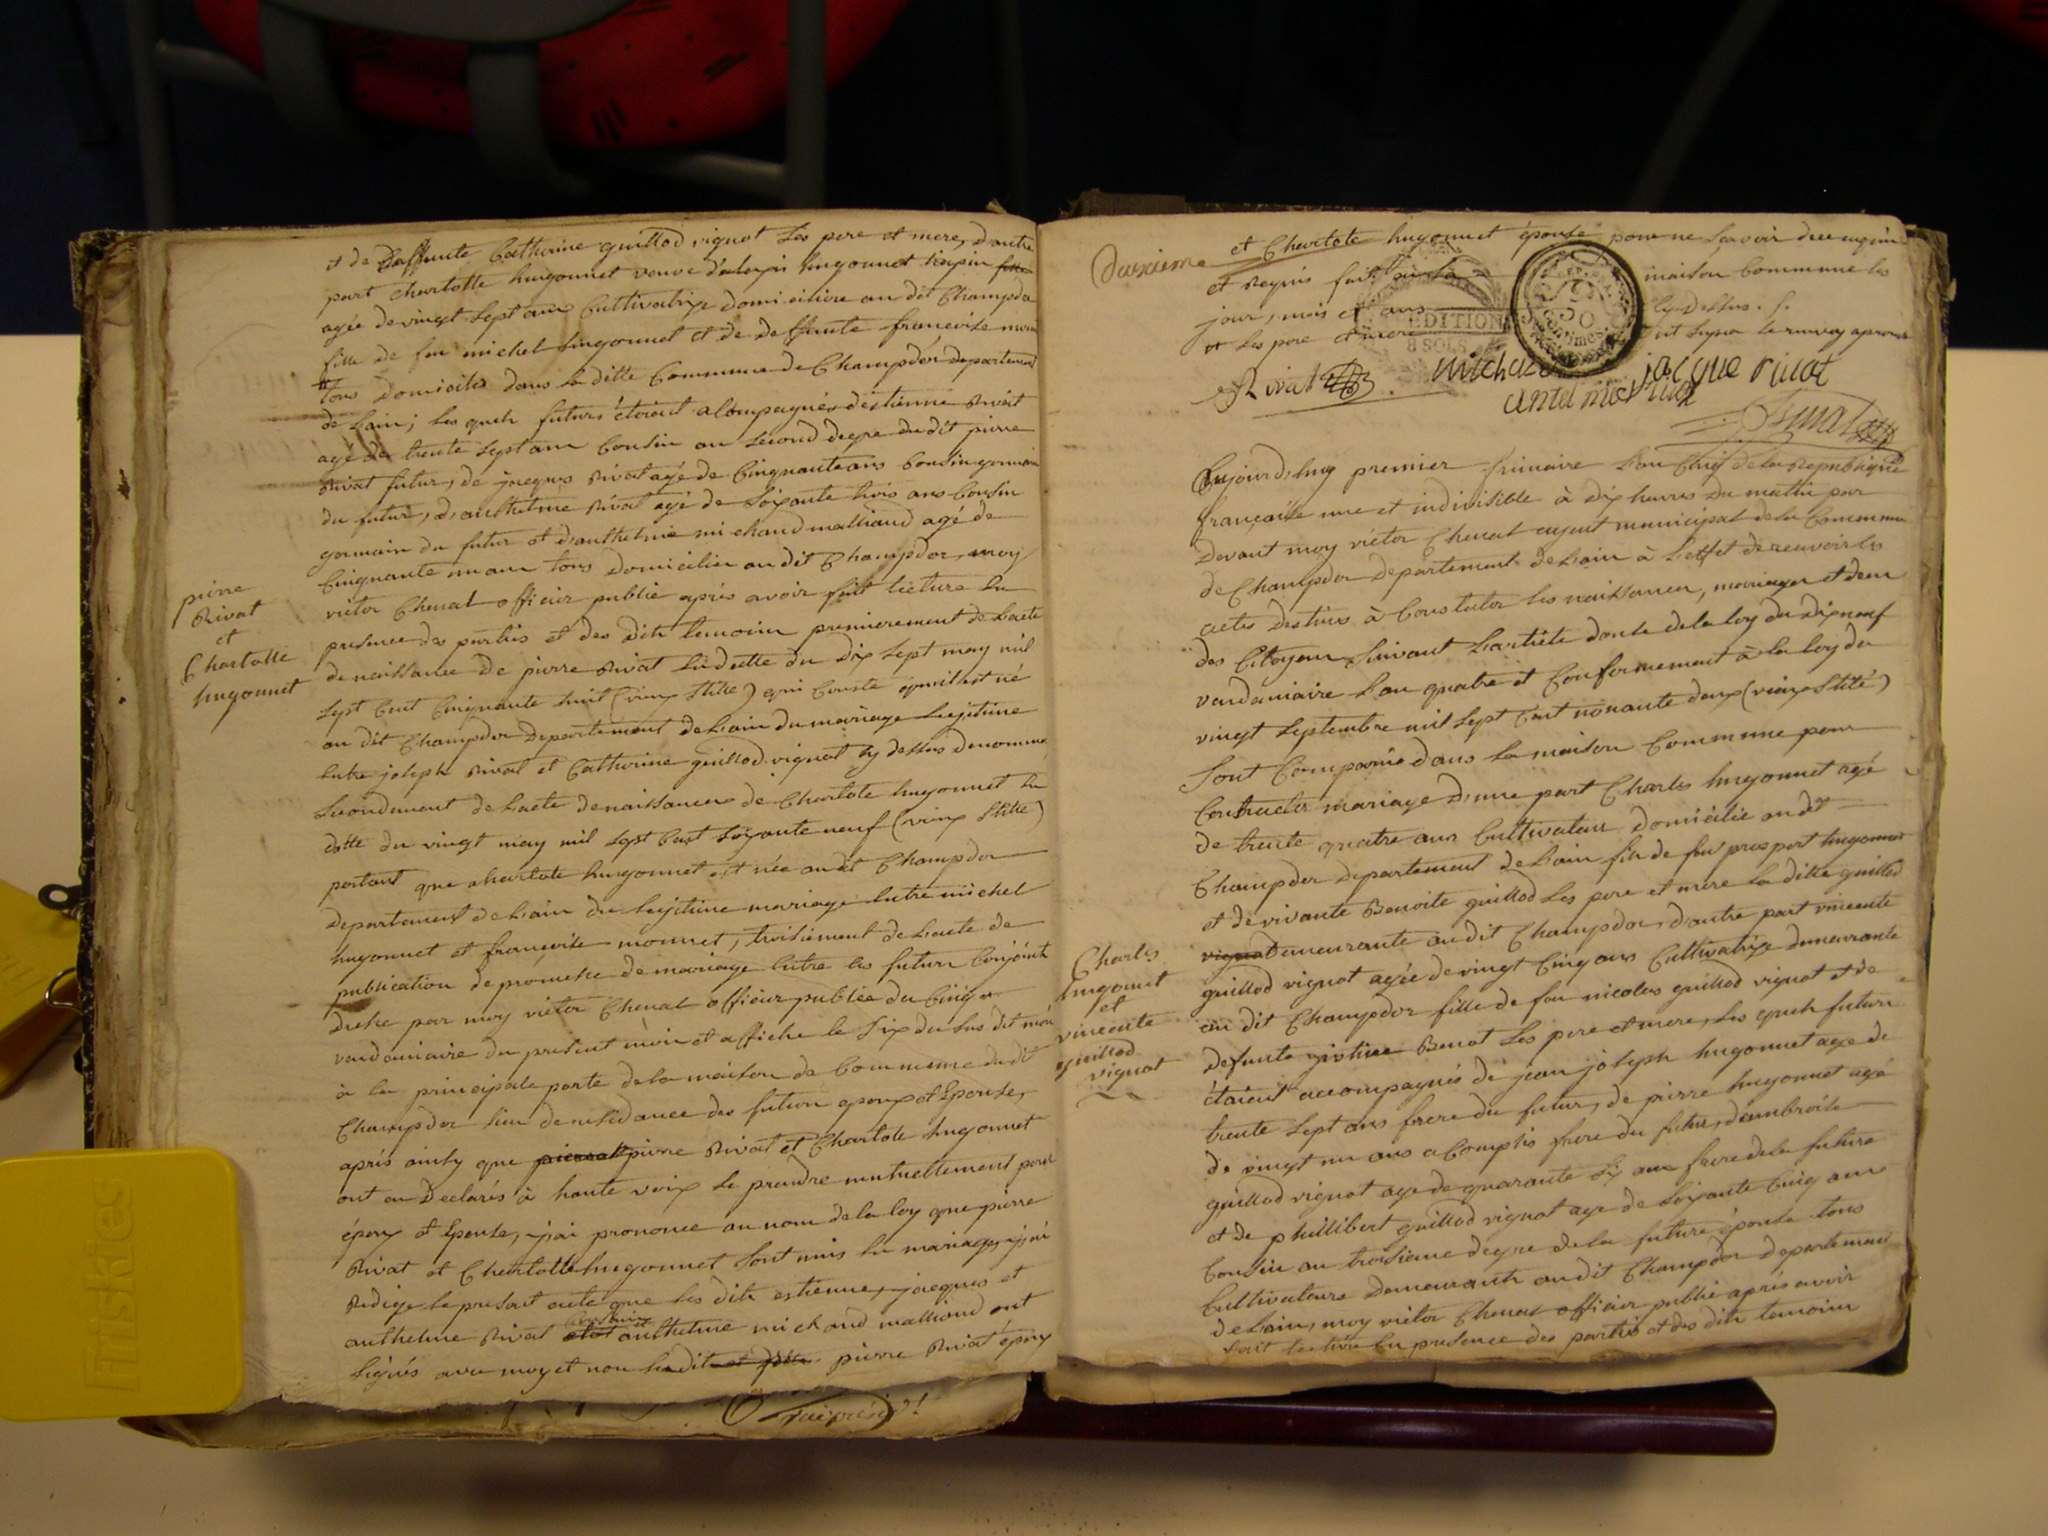 et de deffunte Catherine guillod vignot Les pere et mere, d'autre
part charlotte hugonnet veuve hugonnet
agée de vingt sept ans Cultivatrixe domiciliere au dit Champdor
fille de feu michel hugonnet et de deffunte francoise monnet
tous domiciliés dans la ditte Commune de Champdor departement
de Lain; Les quels futurs étoient acompagnés d'estienne Rivat
agé de trente sept ans Cousin au second degre du dit pierre
Rivat futur, de jacques Rivat agé de Cinquante ans Cousin germain
du futur, d'anthelme Rivat agé de soixante trois ans Cousin
germain du futur et d'anthelme michaud malliand agé de
Cinquante un ans tous domiciliés au dit Champdor, moy
victor Chenat officier public après avoir fait lecture En
presence des parties et des dits temoins premierement de Lacte
de naissance de pierre Rivat En datte du dix sept may mil
sept Cent Cinquante huit (vieux stille) qui Conste qu'il est né
au dit Champdor Departement de Lain du mariage Legitime
Entre joseph Rivat et Catherine guillod vignot cy dessus denommés
Secondement de Lacte de naissance de Charlote hugonnet En
datte du vingt may mil sept Cent soixante neuf (vieux stille)
portant que charlote hugonnet est née au dit Champdor
Departement de Lain du Legitime mariage Entre michel
hugonnet et francoise monnet, troisiement de Lacte de
publication de promesse de mariage Entre les futurs Conjoints
dressé par moy victor Chenat officier public du Cinq
vandemiaire du present mois et affiche le six du sus dit mois
à la principale porte de la maison de Commune du dit
Champdor lieu de residance des futurs epoux et Epouse,
après ainsy que pierre Rivat et Charlote hugonnet
ont eu Declarés à haute voix se prendre mutuellement pour
époux et Epouse, j'ai prononcé au nom de la loy que pierre
Rivat et Charlotte hugonnet sont unis En mariage, j'ai
Redigé le present acte que les dits estienne, jacques et
anthelme Rivat et anthelme michaud malliand ont
signés avec moy et non les dits pierre Rivat époux
pierre
Rivat
et
Charlotte
hugonnet
Deuxieme
et Charlote hugonnet épouse pour ne savoir de ce enquis
et Requis fait en la maison Commune les
jour, mois et ans cy dessus.
et Les pere et mere
Rivat
michaud
jacque rivat
EDITION
8 SOLS
Aujourd'huy premier frimaire L'an Cinq de la Republique
française une et indivisible à dix heures du matin par
devant moy victor Chenat agent municipal de la Commune
de Champdor Departement de Lain à Leffet de recevoir les
actes destinés à Constater les naissances, mariages et deces
des Citoyens suivant Larticle douze de la loy du dixneuf
vandemiaire L'an quatre et Conformement à la loy du
vingt septembre mil sept Cent nonante deux (vieux stile)
Sont Comparus dans la maison Commune pour
Contracter mariage D'une part Charles hugonnet agé
de trente quatre ans Cultivateur domicilié au dit
Champdor Departement de Lain fils de feu prospert hugonnet
et de vivante Benoite guillod Les pere et mere La ditte guillod
demeurante au dit Champdor, d'autre part vincente
guillod vignot agée de vingt Cinq ans Cultivatrixe demeurante
au dit Champdor fille de feu nicolas guillod vignot et de
defunte Benot Les pere et mere, Les quels futurs
étoient accompagnés de jean joseph hugonnet agé de
trente sept ans frere du futur, de pierre hugonnet agé
de vingt un ans acomplis frere du futur, d'ambroise
guillod vignot agé de quarante six ans frere de la future
et de phillibert guillod vignot agé de soixante Cinq ans
Cousin au troisieme degre de la future épouse tous
Cultivateurs demeurants au dit Champdor Departement
de Lain, moy victor Chenat officier public après avoir
fait lecture En presence des parties et des dits temoins
Charles
hugonnet
et
vincente
guillod
vignot
friskies